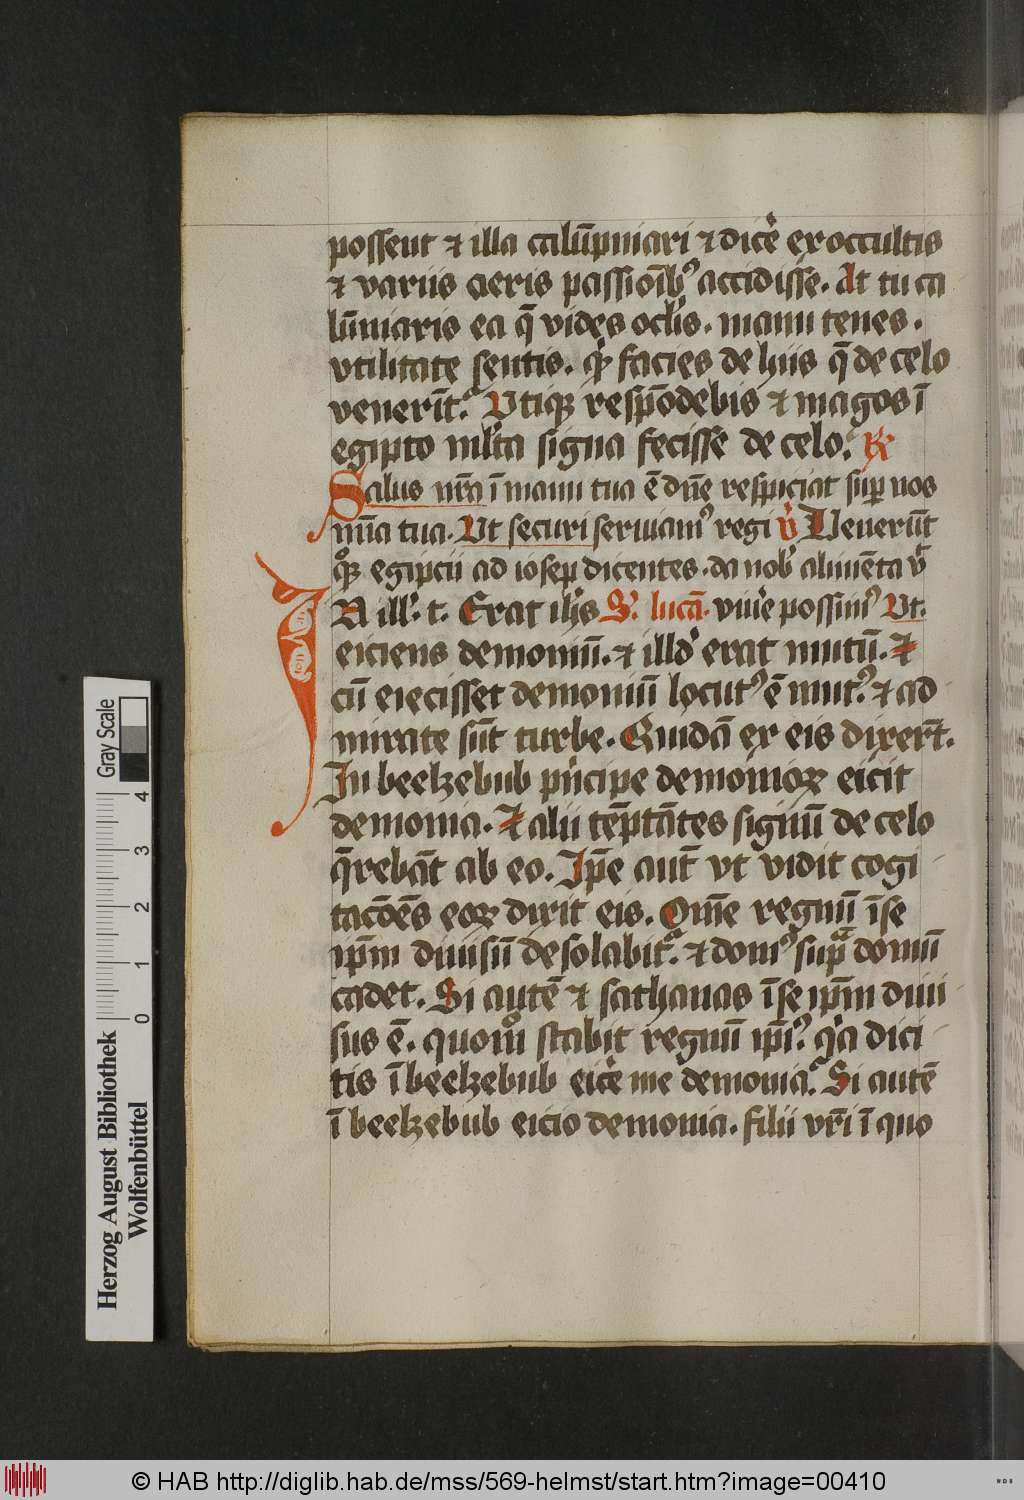 possent ⁊ illa calūpniari ⁊ dicēˀ ex occultis
⁊ variis aeris passioībꝰ accidisse. At tu ca
lūniaris ea q̄ vides oclis. manu tenes.
vtilitate sentis. qͥd facies de hiis q̄ de celo
venerīt. Vtiqꝫ respōdebis ⁊ magos ī
egipto mlta signa fecisse de celo. ℟
Salus nr̄a ī manu tua ē dn̄e respiciat suꝑ nos
mīa tua. Vt securi seruiamꝰ regi v̊ Venerūt
qͦqꝫ egipcii ad iosep dicentes. da nob alimēta vͭ
N ill. t. Erat ihs S. lucā. viuˀe possimꝰ Vt.
eiciens demoniū. ⁊ illd erat mutū. Et
cū eiecisset demoniū locutꝰ ē mutꝰ. ⁊ ad
mirate sūt turbe. Quidā ex eis dixerūt.
In beelzebub pͥncipe demonioꝝ eicit
demonia. Et alii tēptātes signū de celo
q̄rebāt ab eo. Ip̄e aut̄ vt vidit cogi
tacōēs eoꝝ dixit eis. Om̄e regnū ī se
ip̄m diuisū desolabit᷑. ⁊ domꝰ supᵃ domū
cadet. Si autē ⁊ sathanas ī se ip̄m diui
sus ē. quomͦ stabit regnū ip̄iꝰ. qͥa dici
tis ī beelzebub eicˀe me demonia. Si autē
ī beelzebub eicio demonia. filii vr̄i ī quo
Gray Scale
4
3
2
1
0
Herzog August Bibliothek
Wolfenbüttel
© HAB http://diglib.hab.de/mss/569-helmst/start.htm?image=00410